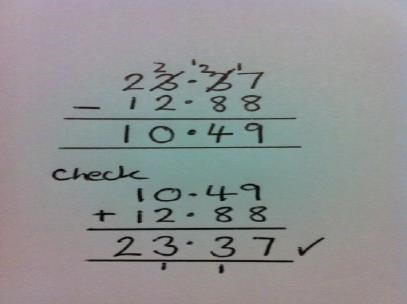 2 12 1
23.37
- 12.88
10.49
check
10.49
+ 12.88
23.37 ✓
1 1